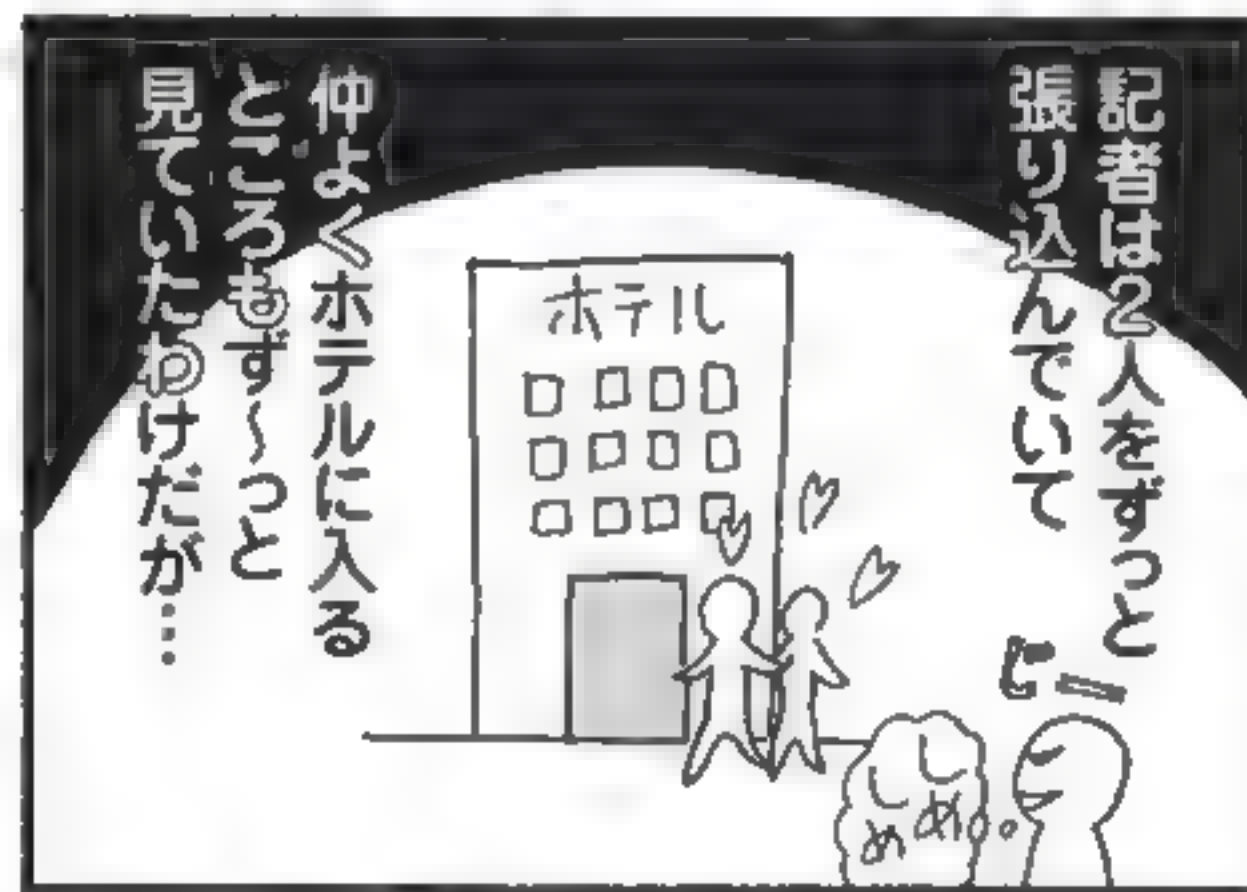 記者は2人をずっと
張り込んでいて
仲よくホテルに入る
ところもず〜っと
見ていたわけだが…
ホテル
じー
しめ
しめ